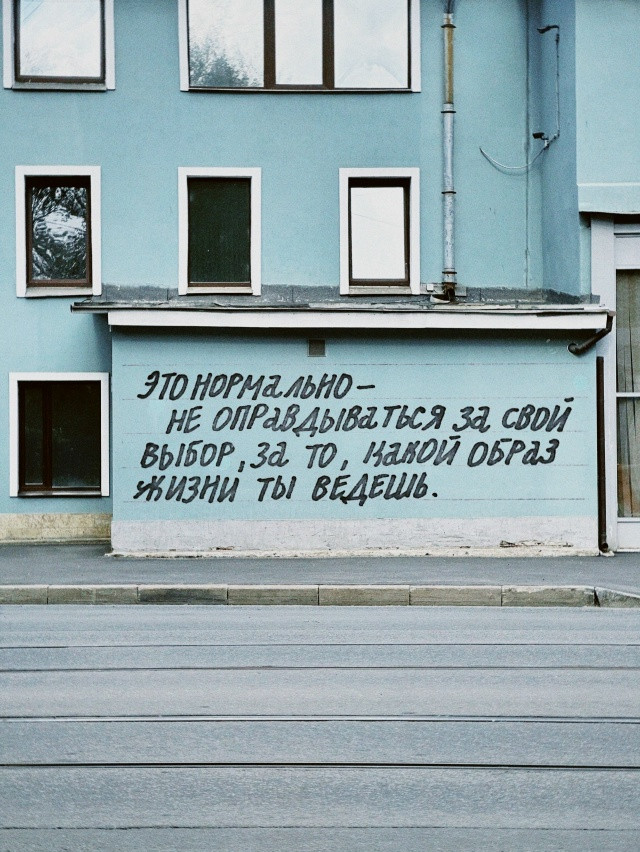 ЭТО НОРМАЛЬНО –
НЕ ОПРАВДЫВАТЬСЯ ЗА СВОЙ
ВЫБОР, ЗА ТО, КАКОЙ ОБРАЗ
ЖИЗНИ ТЫ ВЕДЕШЬ.